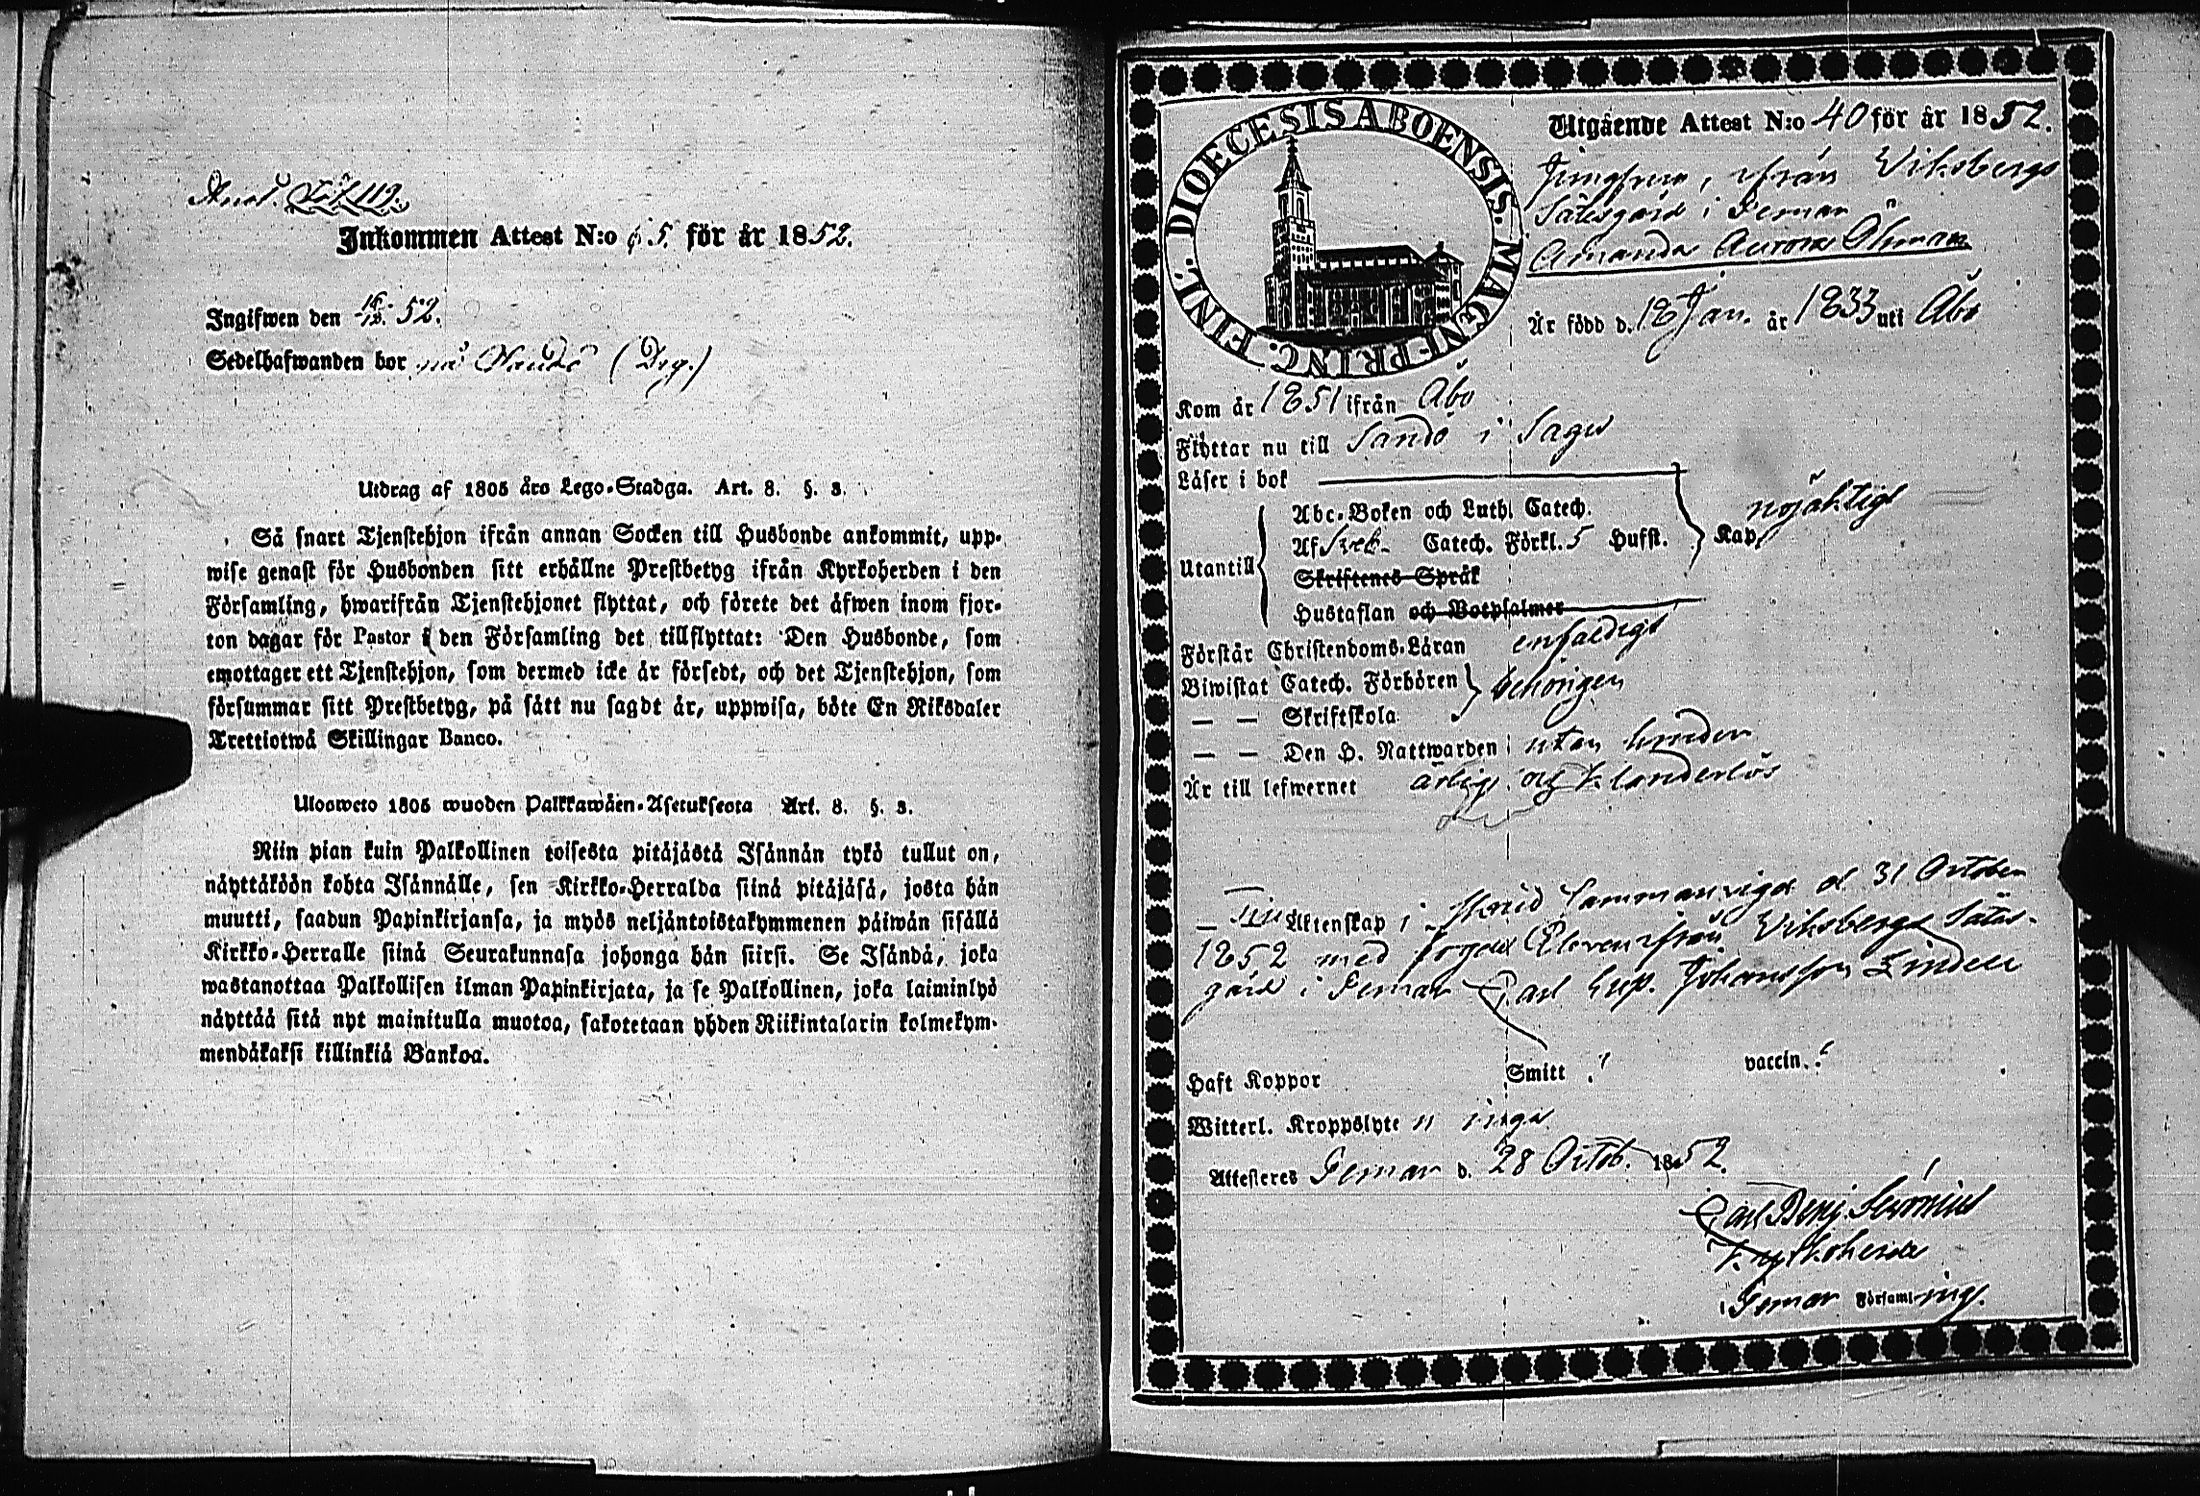 Inkommen Attest N:o 65. för år 1852.
Ingifwen den 16/12. 52.
Sedelhafwanden bor på Sandö (Drg.)
Utdrag af 1805 års Lego-Stadga. Art. 8. §. 3.
Så snart Tjenstehjon ifrån annan Socken till Husbonde ankommit, upp-
wise genast för Husbonden sitt erhållne Prestbetyg ifrån Kyrkoherden i den
Församling, hwarifrån Tjenstehjonet flyttat, och förete det äfwen inom fjor-
ton dagar för Pastor i den Församling det tillflyttat: Den Husbonde, som
emottager ett Tjenstehjon, som dermed icke är försedt, och det Tjenstehjon, som
försummar sitt Prestbetyg, på sätt nu sagdt är, uppwisa, böte En Riksdaler
Trettiotwå Skillingar Banco.
Ulosweto 1805 wuoden Palkkawäen-Asetuksesta Art. 8. §. 3.
Niin pian kuin Palkollinen toisesta pitäjästä Isännän tykö tullut on,
näyttäköön kohta Isännälle, sen Kirkko-Herralda siinä pitäjäsä, josta hän
muutti, saadun Papinkirjansa, ja myös neljäntoistakymmenen päiwän sisällä
Kirkko-Herralle siinä Seurakunnasa johonga hän siirsi. Se Isändä, joka
wastanottaa Palkollisen ilman Papinkirjata, ja se Palkollinen, joka laiminlyö
näyttää sitä nyt mainitulla muotoa, sakotetaan yhden Riikintalarin kolmekym-
mendäkaksi killinkiä Bankoa.
DIOECESIS ABOENSIS. MAGNI PRINC. FINL.
Utgående Attest N:o 40 för år 1852.
Jungfrun, ifrån Viksbergs
Sätesgård i Pemar
Amanda Aurora Öhman
Är född d. 18 Jan. år 1833 uti Åbo
Kom år 1851 ifrån Åbo
Flyttar nu till Sandö i Sagu
Läser i bok
Abc-Boken och Luth. Catech.
Utantill Af Sveb. Catech. Förkl. 5 Hufst. Kap. nöjaktigt
Skriftenes Språk
Hustaflan och Botpsalmer
Förstår Christendoms-Läran enfaldigt
Biwistat Catech. Förhören behörigen
— — Skriftskola
— — Den H. Nattwarden utan hinder
Är till lefwernet ärligt och klanderlös
— Till Äktenskap i Sammanvigd d 31 October
1852 med Eleven ifrån Viksbergs Sätes-
gård i Pemar Carl Gust. Johansson Lindell
Haft Koppor Smitt vaccin.
Witterl. Kroppslyte inga
Attesteres Pemar d. 28 Octob. 1852.
Carl Benj.
Pemar Församling.